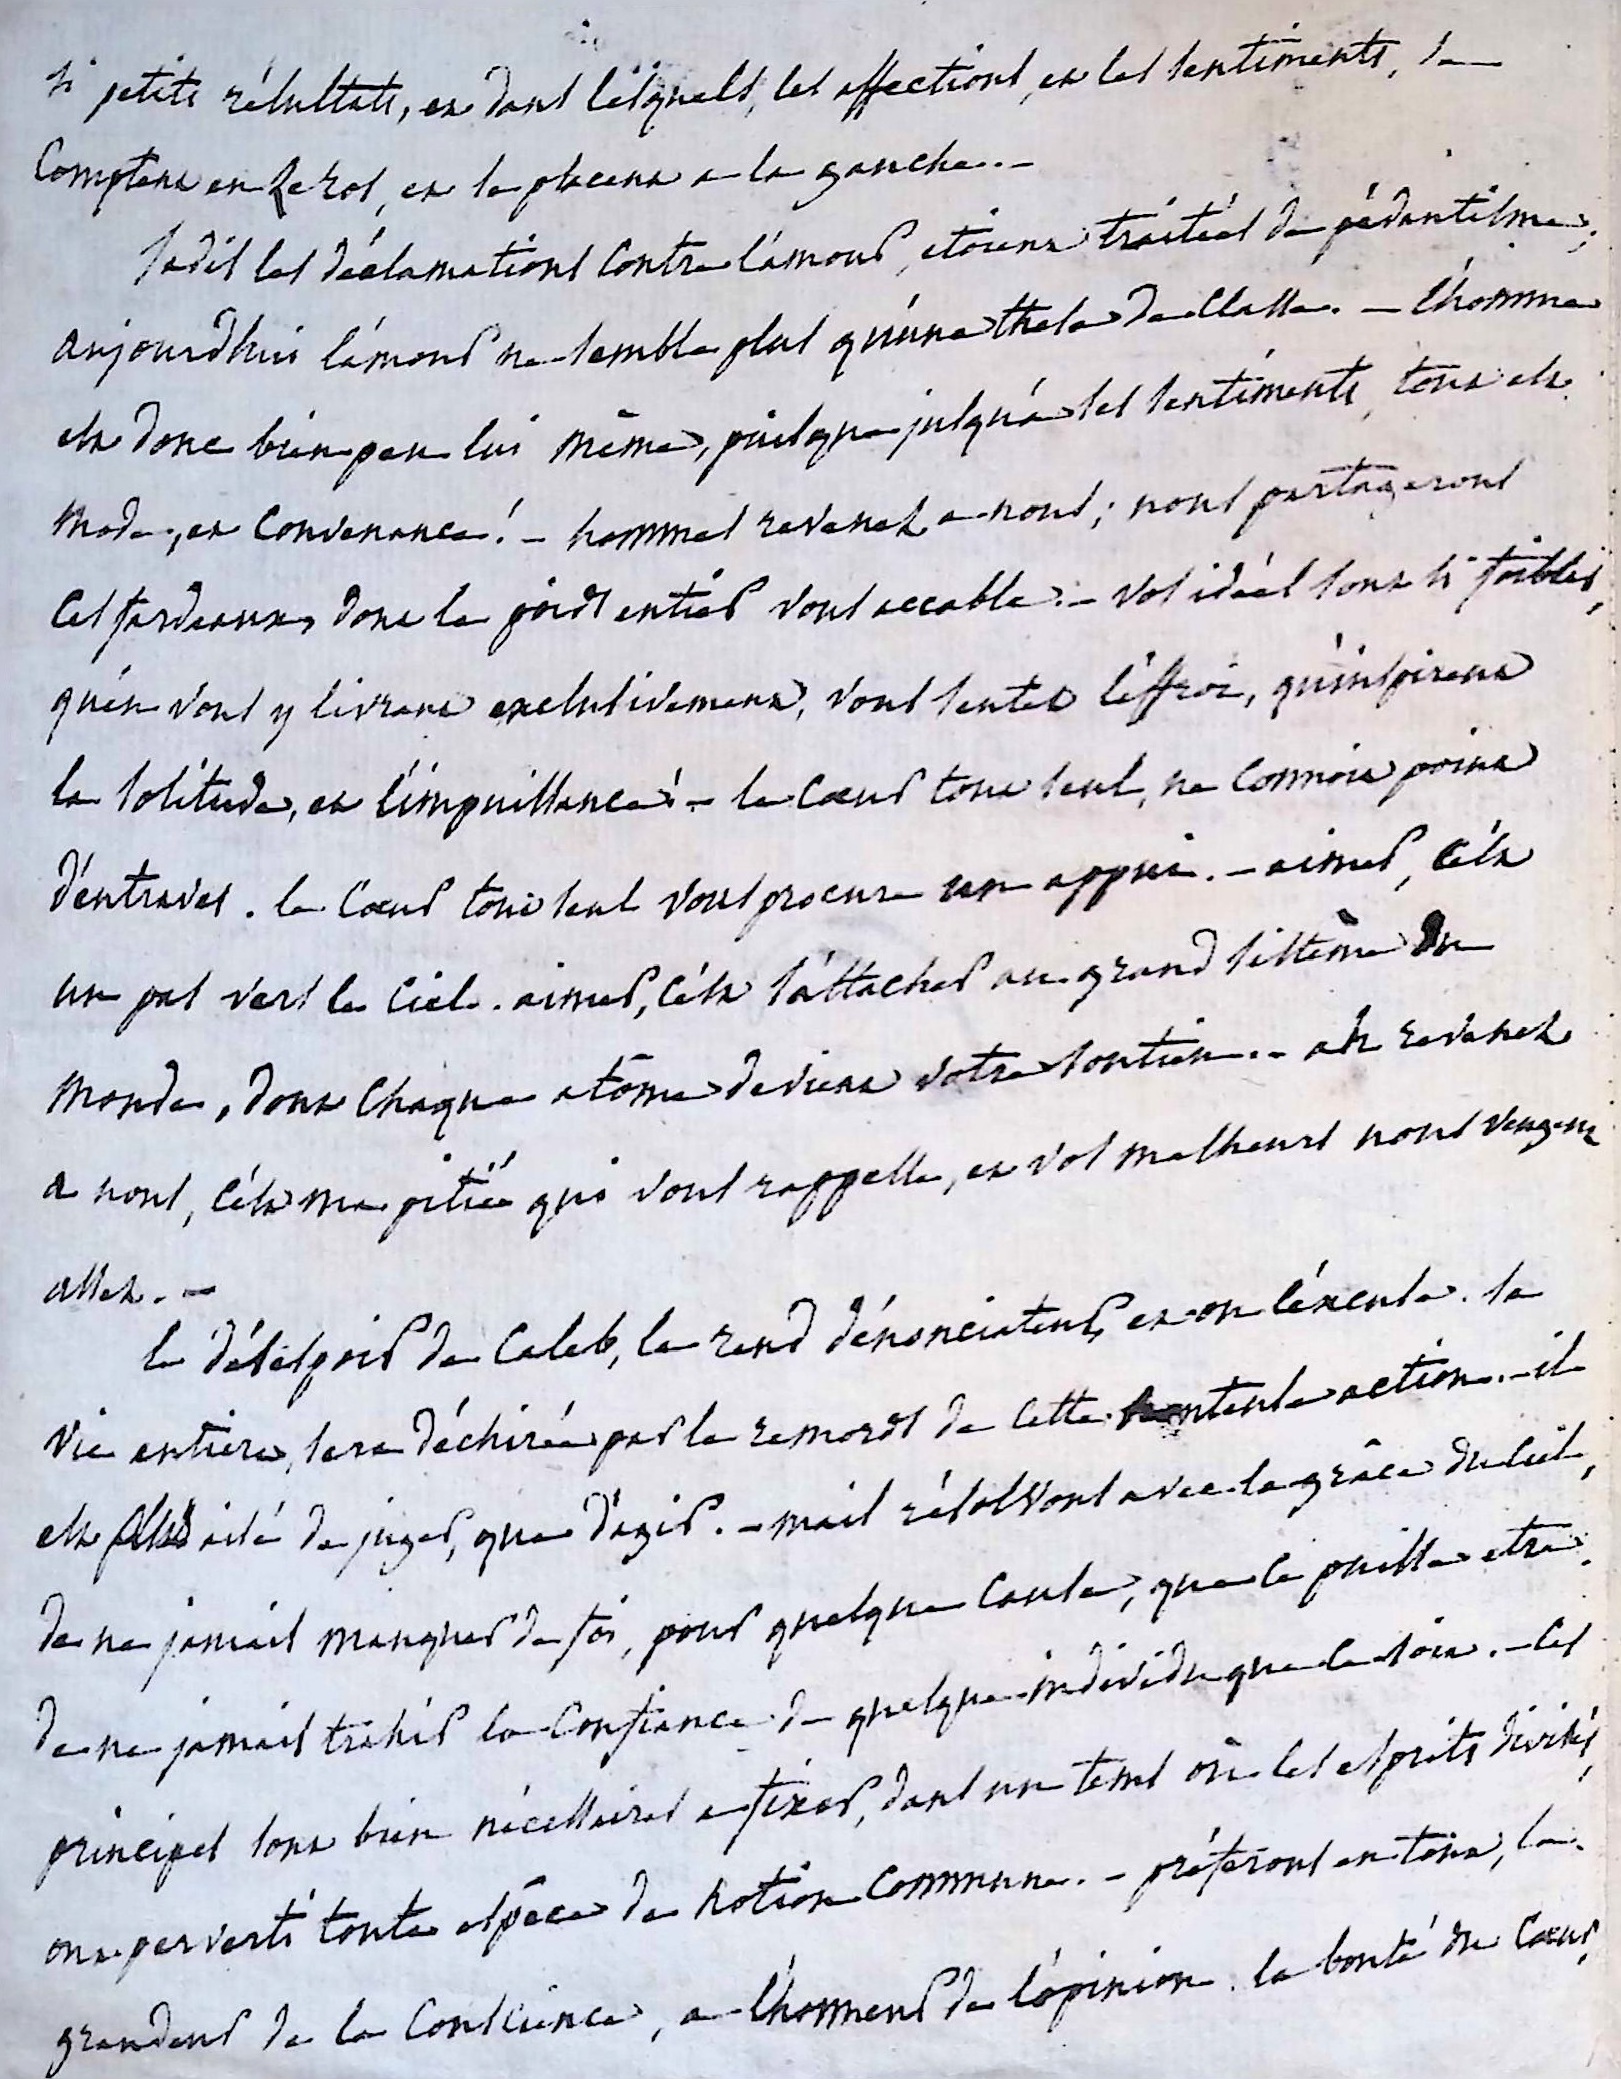 si petits résultats, et dans lésquels, les affections, et les sentiments, se
comptent en Zeros, et se placent a la gauche. -
Jadis les déclamations contre l'amour, etoient traitées de pédantisme;
aujourdhui l'amour ne semble plus qu'une these de classe. - l'homme
est donc bien peu lui même, puisque jusqu'a ses sentiments, tout est
mode, et convenance! - hommes revenez a nous; nous partagerons
ces fardeaux, dont le poids entier vous accable. - vos idées sont si foibles,
qu'en vous y livrant exclusivement, vous sentez l'éffroi, qu'inspirent
la solitude, et l'impuissance! - le coeur tout seul, ne connoit point
d'entraves. le coeur tout seul vous procure un appui. - aimer, c'ést
un pas vers le ciel. aimer, c'ést s'attacher au grand sistême du
monde, dont chaque atôme devient votre soutien. - ah revenez
a nous, c'ést ma pitiée qui vous rappelle, et vos malheurs nous vengent
assez. -
le désespoir de Caleb, le rend dénonciateur, et on l'éxcuse. sa
vie entiere, sera déchirée par le remords de cette honteuse action. - il
est plus aisé de juger, que d'agir. - mais résolvons avec la grâce du ciel,
de ne jamais manquer de foi, pour quelque cause, que ce puisse etre.
de ne jamais trahir la confiance de quelque individu que ce soit. - ces
principes sont bien nécessaires a fixer, dans un tems où les esprits divisés,
ont perverti toute espêce de notion commune. - préferons en tout, la
grandeur de la conscience, a l'honneur de l'opinion. la bonté du coeur,